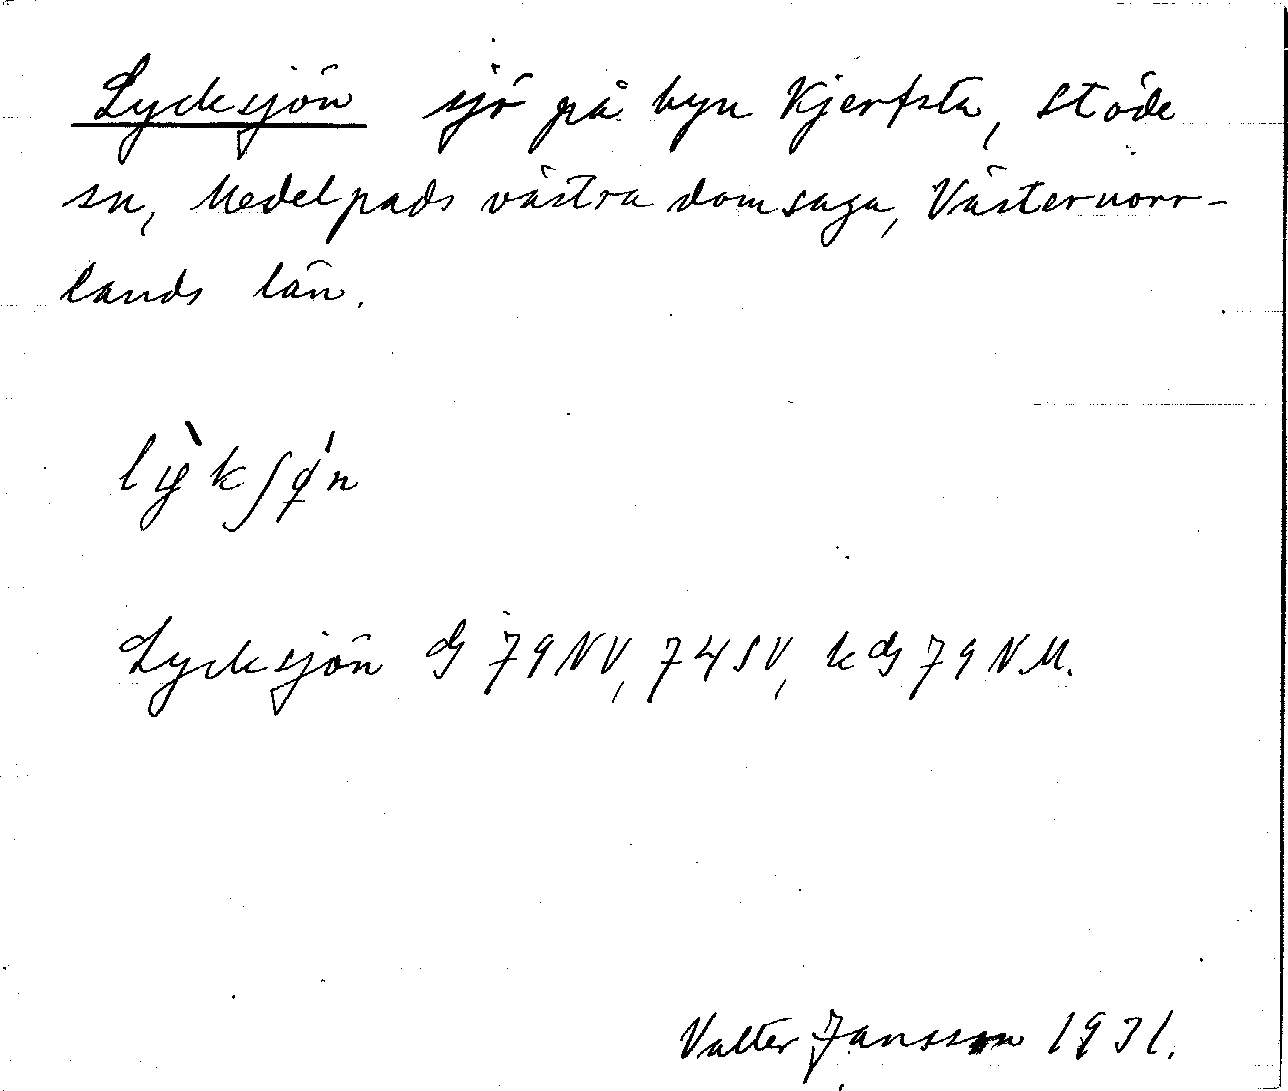 Lycksjön sjö på byn Kjerfsta, Stöde
sn, Medelpads västra domsaga, Västernorr-
lands län.
lỳkʃǿn
Lycksjön G 79 NV, 74 SV, k G 79 N M.
Valter Jansson 1931.